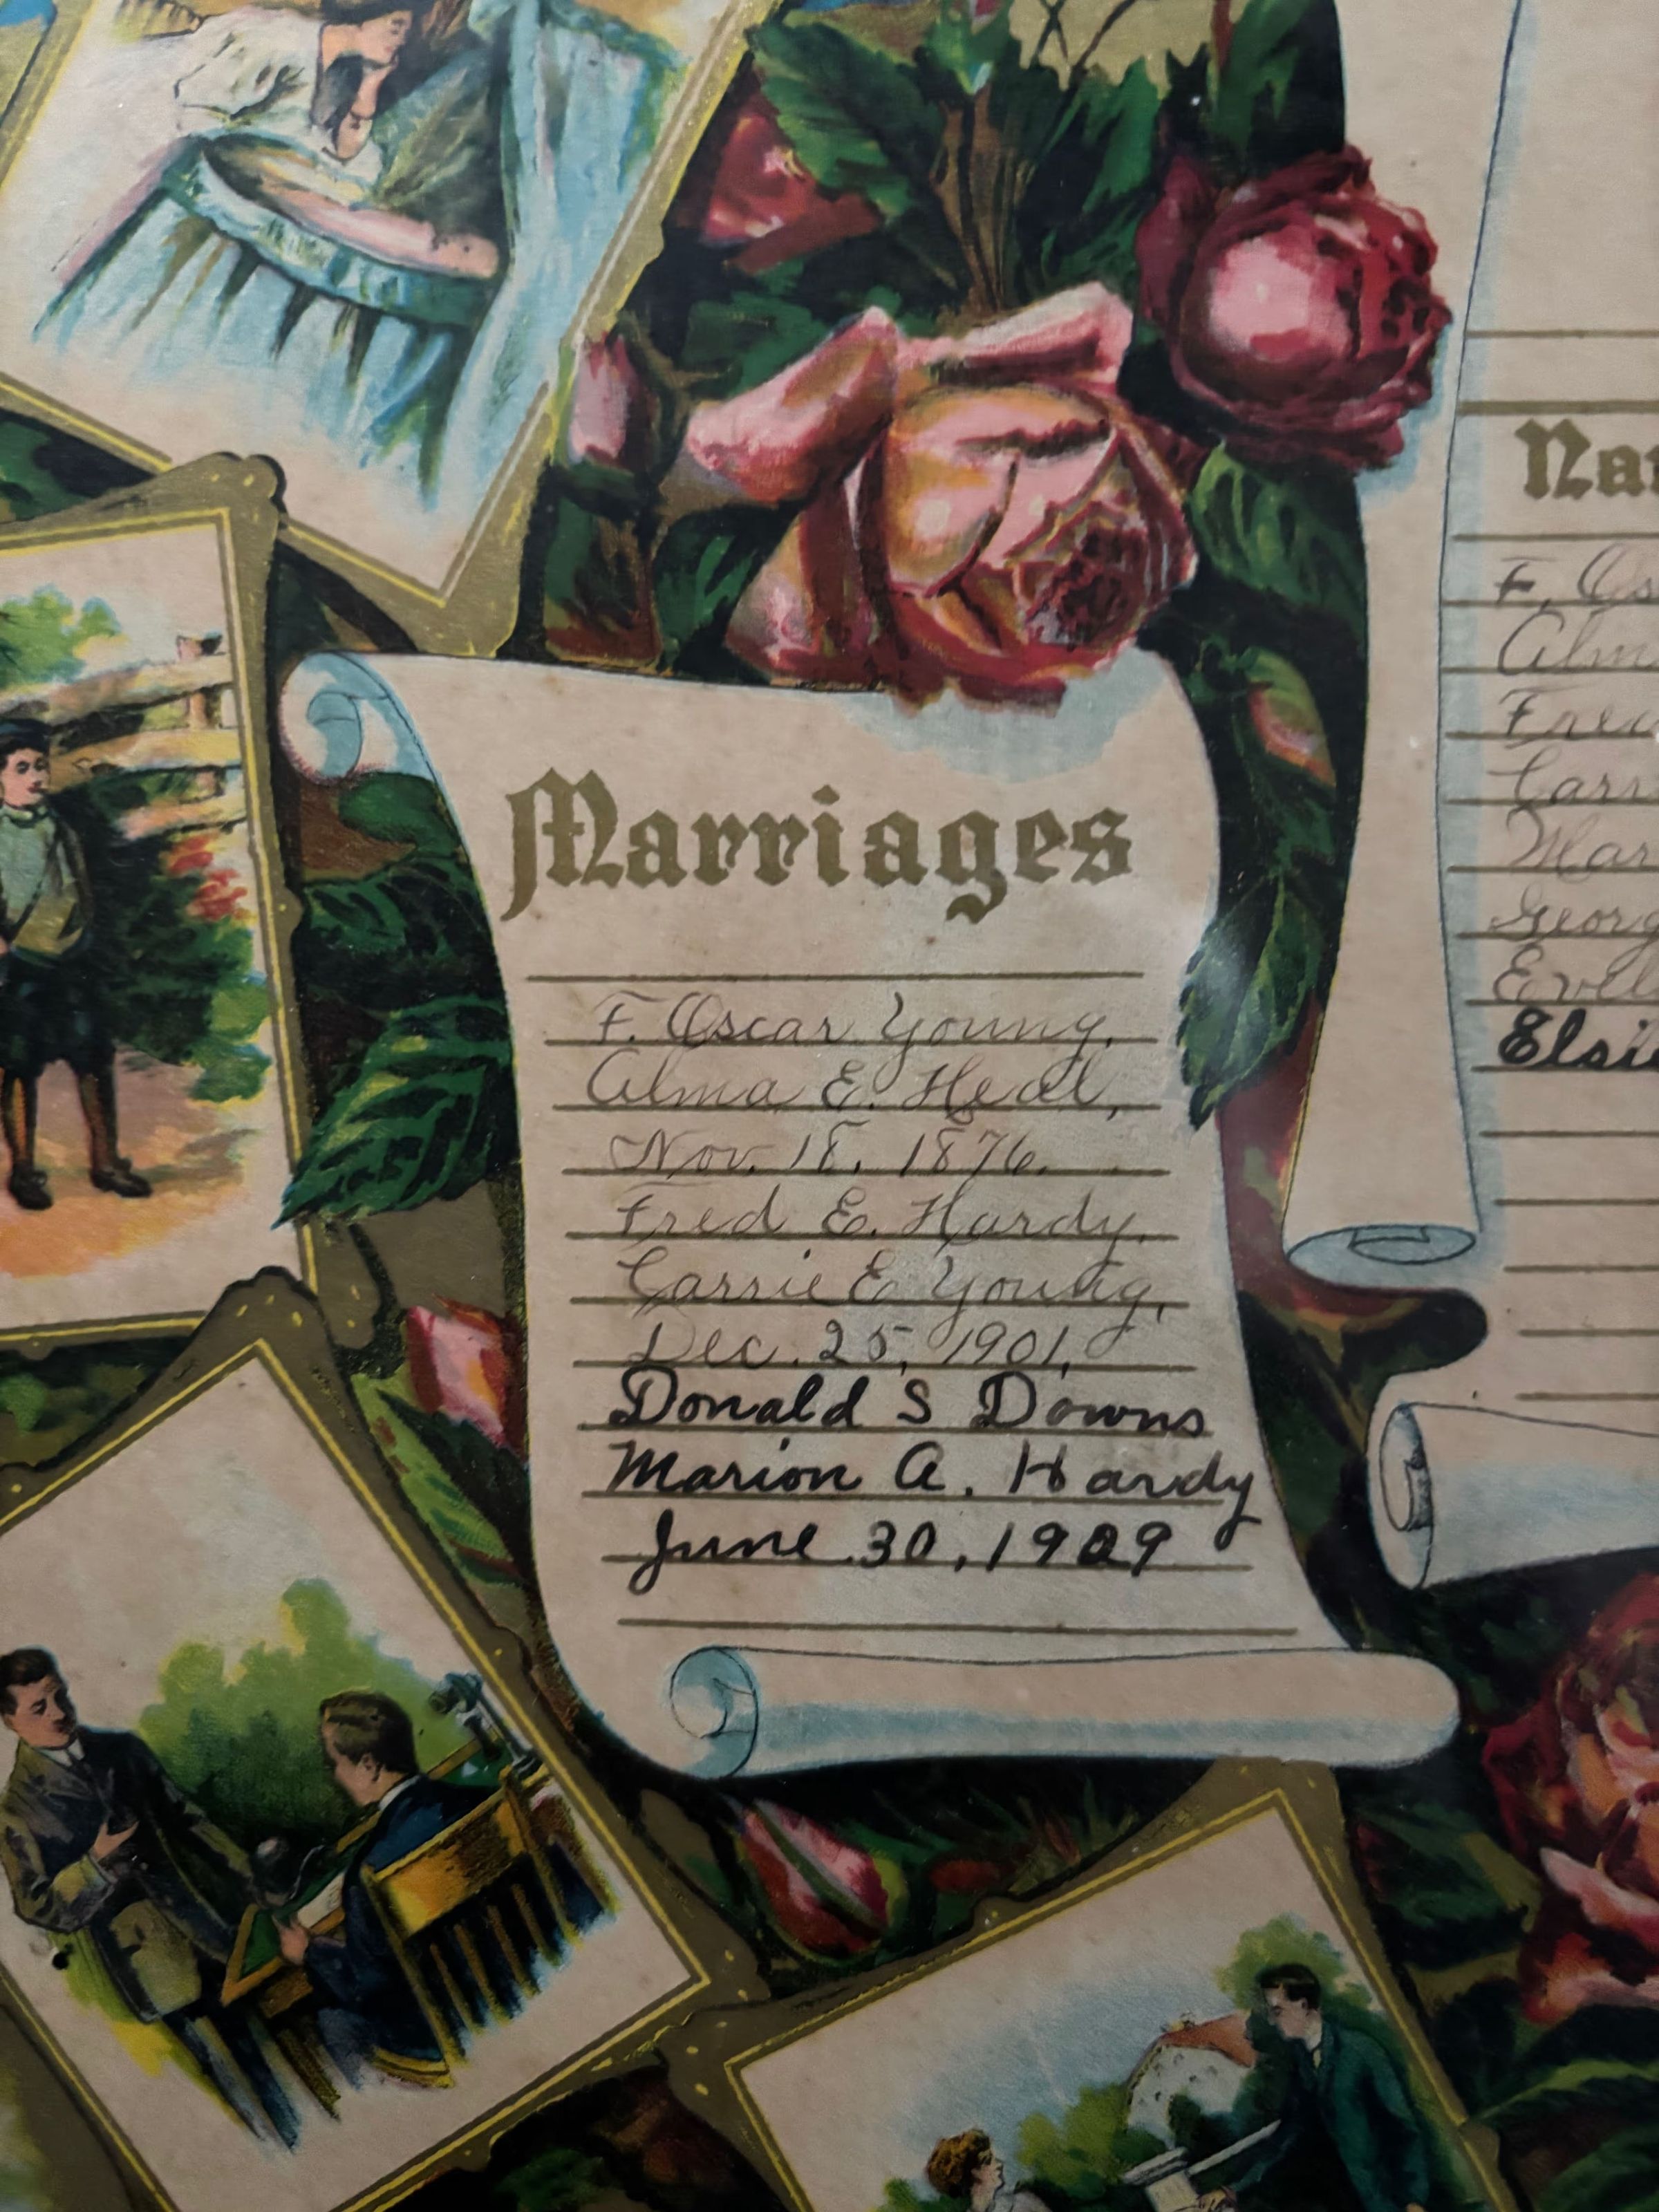 Marriages
F. Oscar Young,
Alma E. Heal,
Nov. 18, 1876.
Fred E. Hardy,
Carrie E Young,
Dec. 25, 1901,
Donald S Downs
Marion A. Hardy
June 30, 1929
Na
F. Os
Alm
Fred
Carr
Mar
Georg
Evel
Elsie